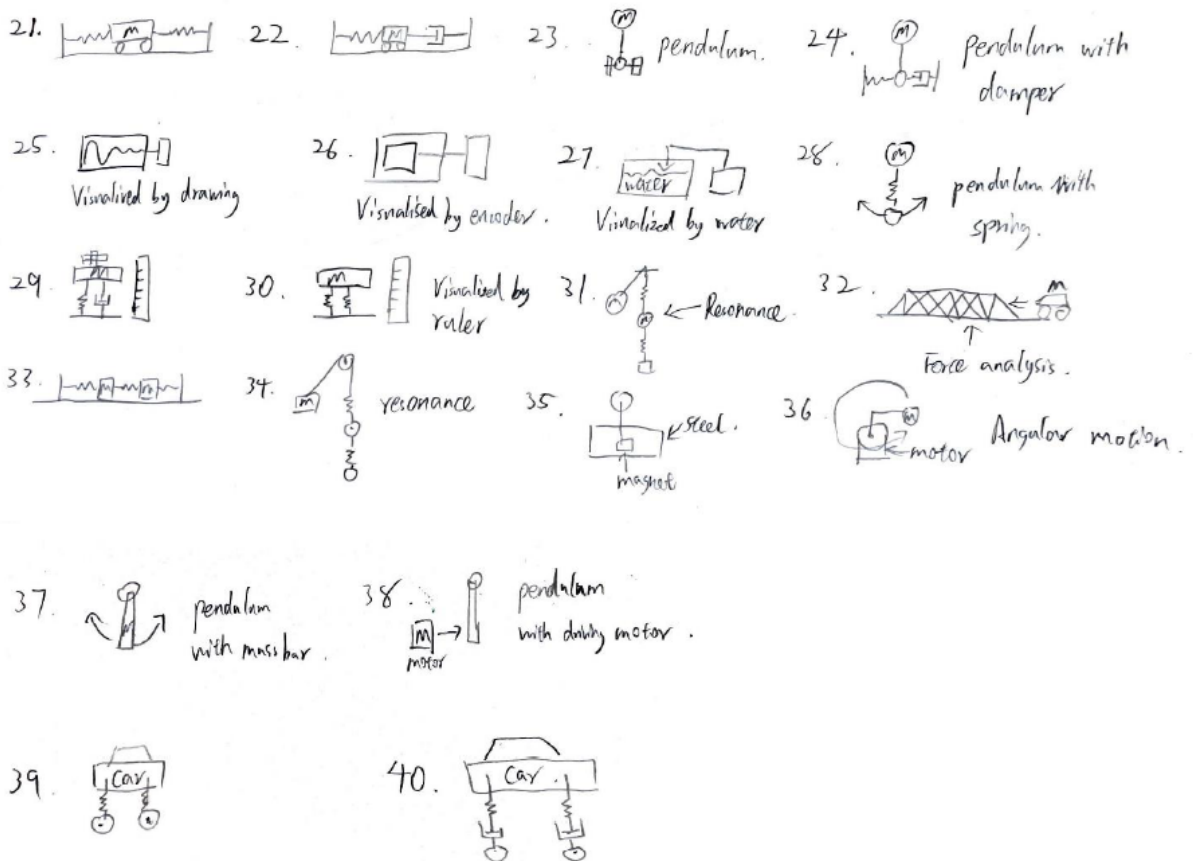 21. M
22. M
23. M pendulum.
24. M pendulum with
damper
25.
Visualized by drawing
26.
Visualised by encoder.
27. water
Visualized by water
28. M pendulum with
spring.
29. M
30. M Visualized by
ruler
31. M M Resonance.
32. M
Force analysis.
33. M M
34. M resonance
35. steel.
magnet
36. M motor Angular motion.
37. M pendulum
with mass bar.
38. M motor pendulum
with driving motor.
39. Car
40. Car.